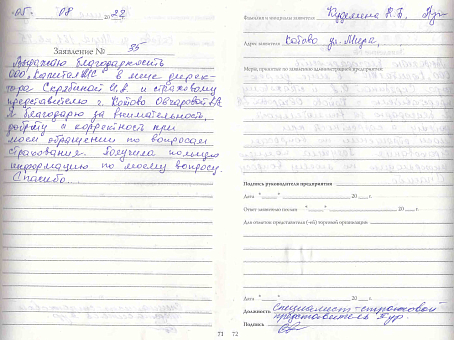 "05" 08 2022
Заявление № 35
Выражаю благодарность
ООО "Капитал МС" в лице дирек-
тора Скрябиной О.В. и страховому
представителю г. Котово
Я благодарю за внимательность,
доброту и корректность при
моем обращении по вопросам
страхования. Получила полную
информацию по моему вопросу.
Спасибо...
71
Фамилия и инициалы заявителя
Адрес заявителя Котово ул. Мира,
Меры, принятые по заявлению администрацией предприятия:
Подпись руководителя предприятия
Дата "____" 20 ___ г.
Ответ заявителю послан "____" 20 ___ г.
Для отметок представителя (-ей) торговой организации
Дата "____" 20 ___ г.
Должность специалист-страховой
представитель
Подпись
72